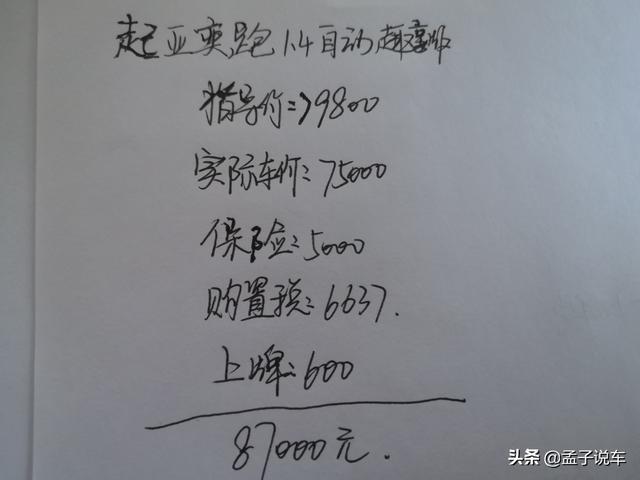 起亚奕跑1.4自动趣享版
指导价:79800
实际车价:75000
保险:5000
购置税:6637.
上牌:600
87000元.
头条 @孟子说车